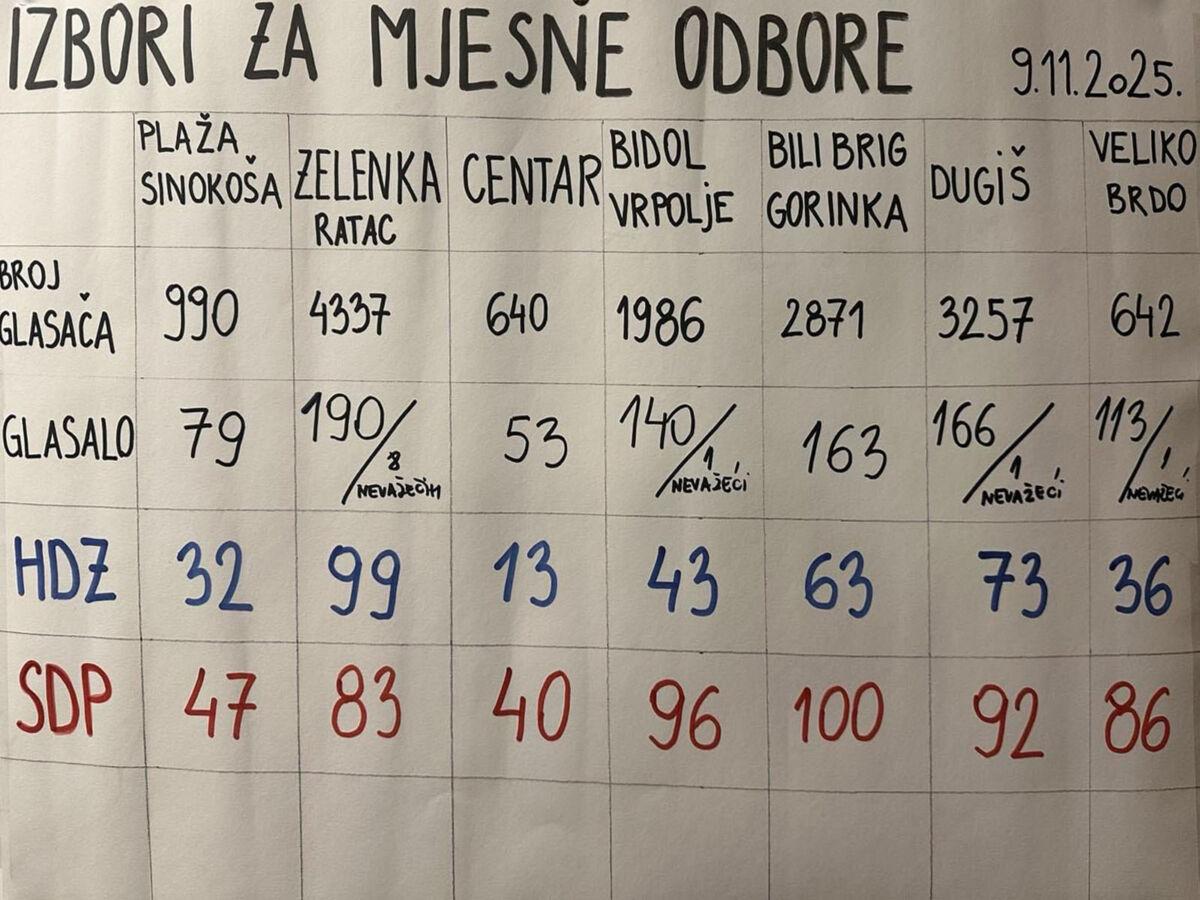 IZBORI ZA MJESNE ODBORE
9.11.2025.
PLAŽA SINOKOŠA
ZELENKA RATAC
CENTAR
BIDOL VRPOLJE
BILI BRIG GORINKA
DUGIŠ
VELIKO BRDO
BROJ GLASAČA 990 4337 640 1986 2871 3257 642
GLASALO 79 190/8 NEVAŽEĆIH 53 140/1 NEVAŽEĆI 163 166/1 NEVAŽEĆI 113/1 NEVAŽEĆI
HDZ 32 99 13 43 63 73 36
SDP 47 83 40 96 100 92 86